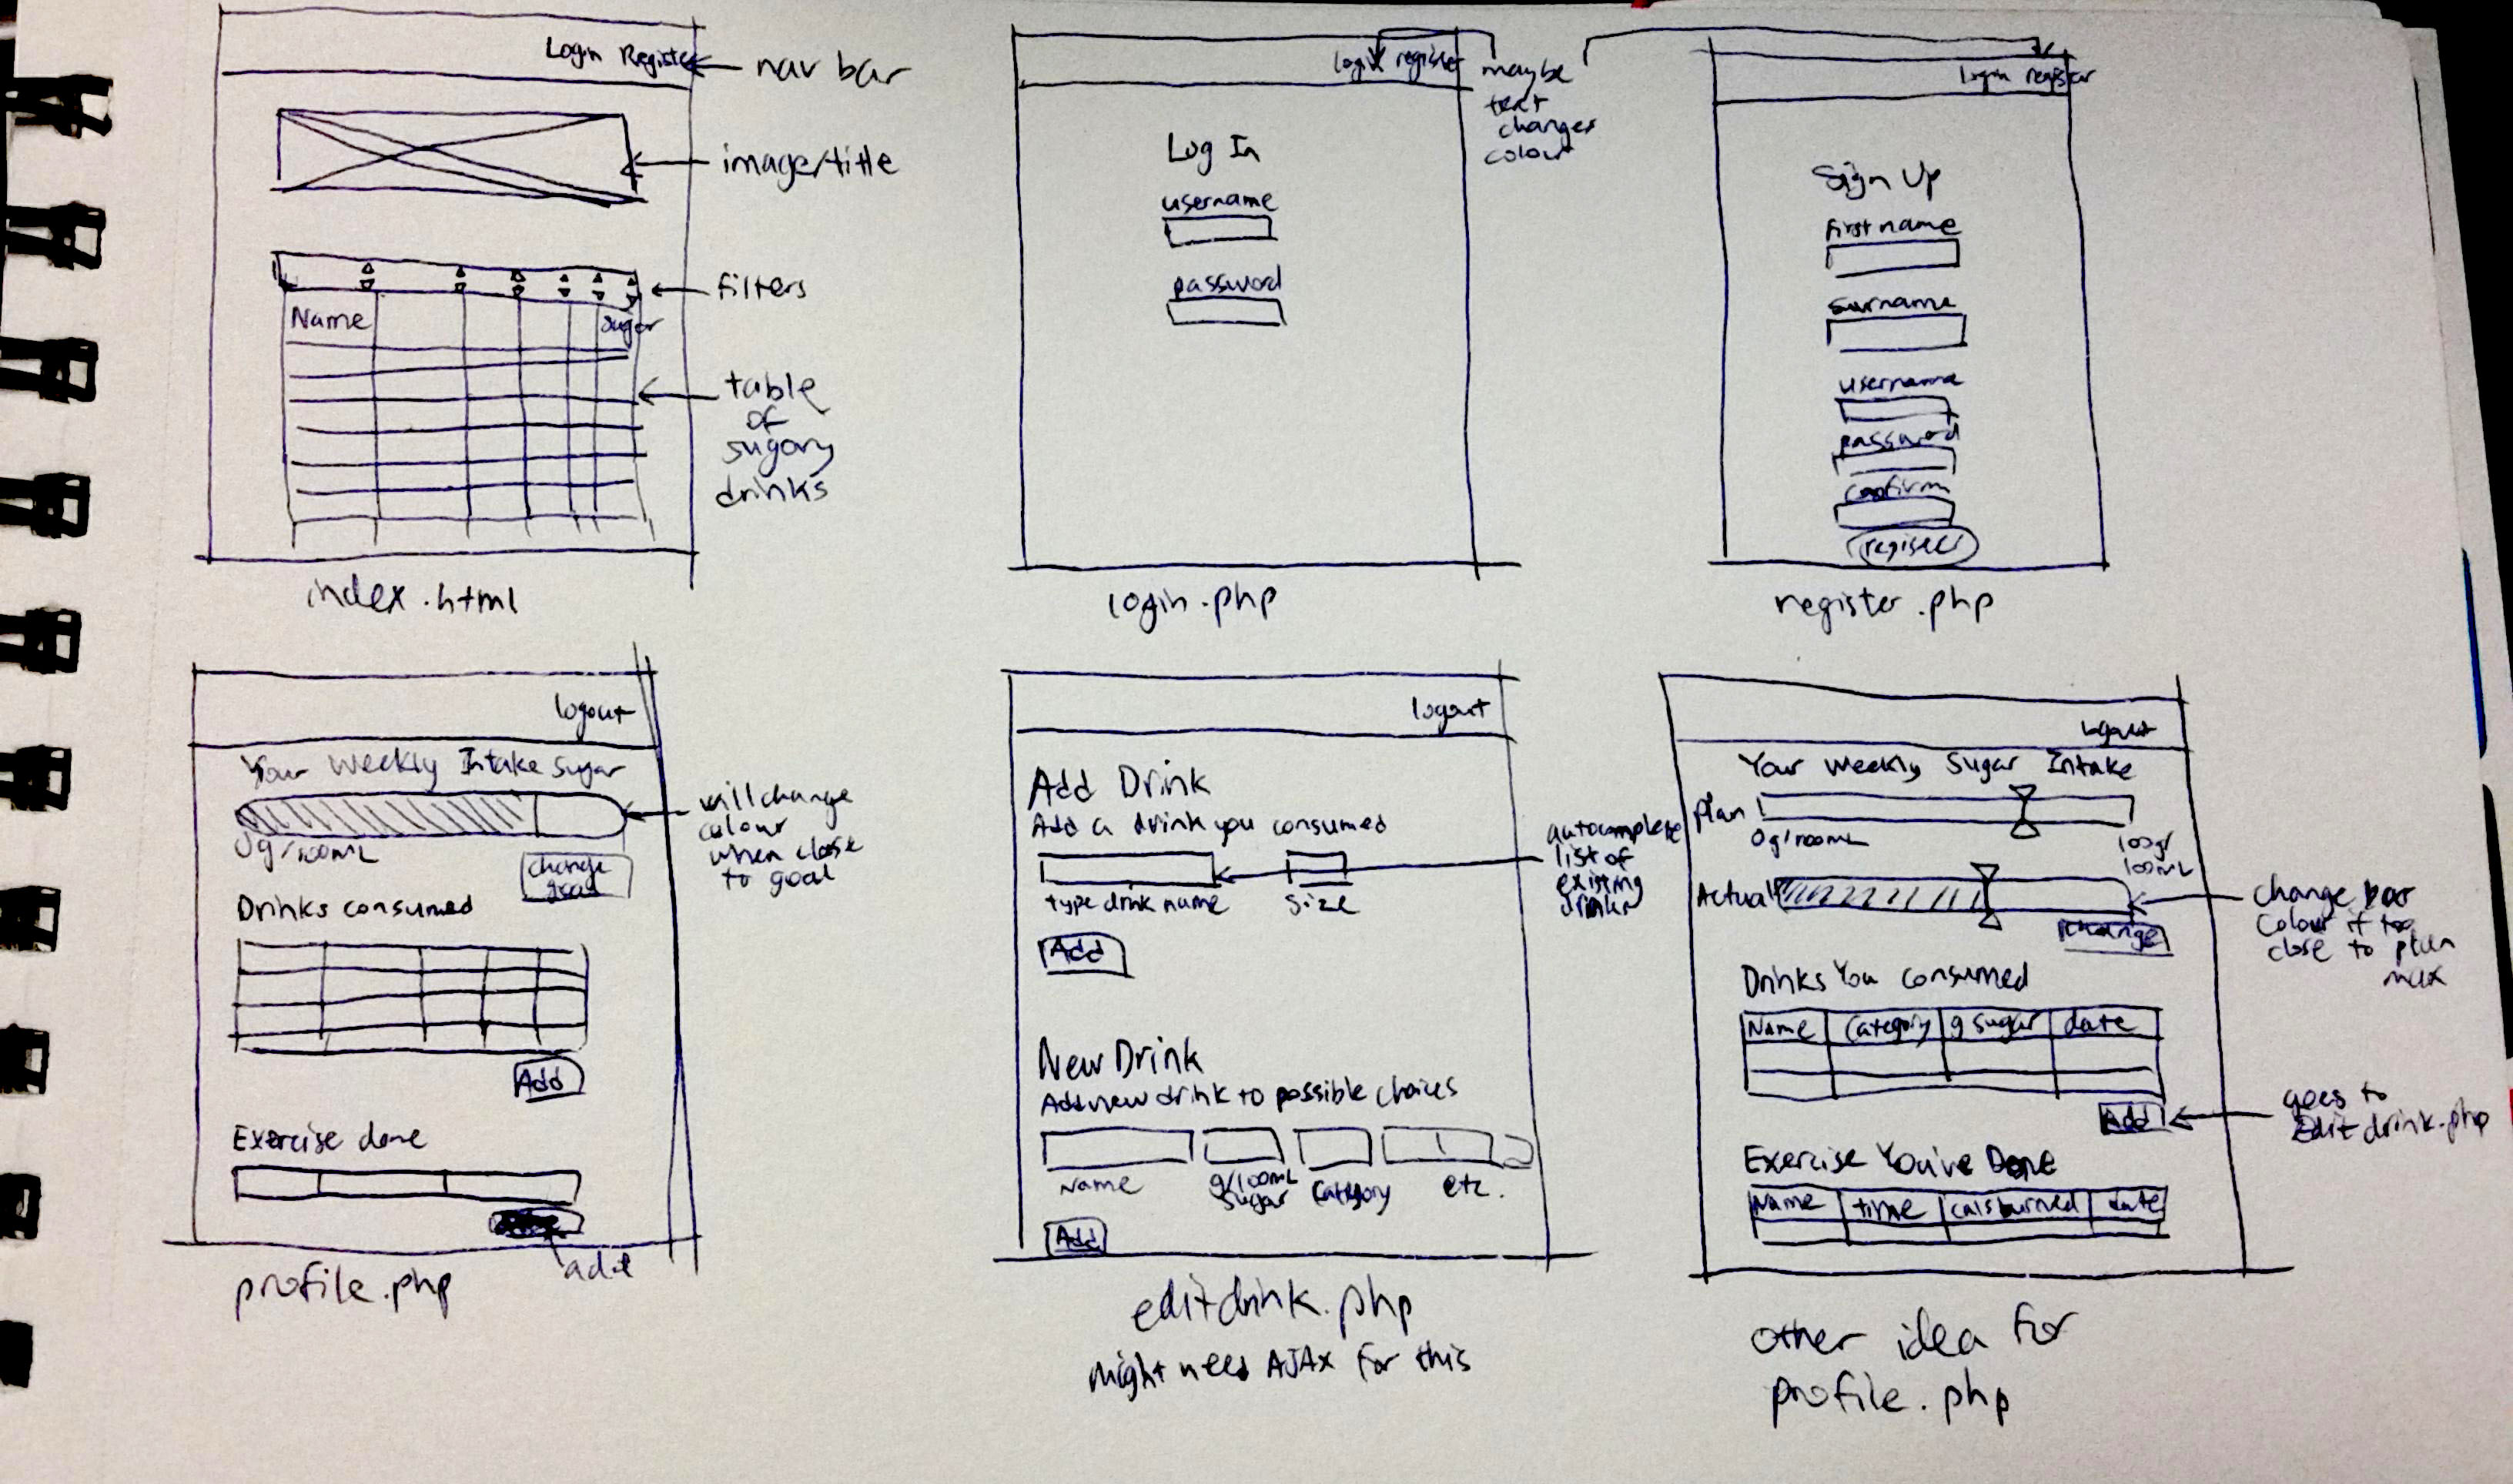 Login Register
nav bar
image/title
filters
Name
sugar
table
of
sugary
drinks
index.html
login register
maybe
text
changes
colour
Log In
username
password
login.php
login register
Sign Up
first name
surname
username
password
confirm
register
register.php
logout
Your Weekly Intake Sugar
0g/100mL
change
goal
will change
colour
when close
to goal
Drinks consumed
Add
Exercise done
add
profile.php
logout
Add Drink
Add a drink you consumed
type drink name
size
autocomplete
list of
existing
drinks
Add
New Drink
Add new drink to possible choices
Name
g/100mL
sugar
Category
etc.
Add
editdrink.php
might need AJAX for this
logout
Your Weekly Sugar Intake
Plan
0g/100mL
100g/
100mL
Actual
change
change bar
colour if too
close to plan
max
Drinks You consumed
Name
Category
g sugar
date
Add
goes to
Editdrink.php
Exercise You've Done
Name
time
cals burned
date
other idea for
profile.php